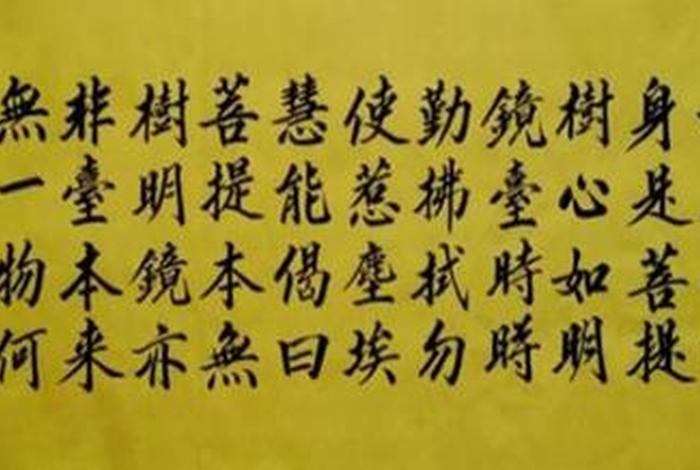 身是菩提
樹心如明
鏡臺時時
勤拂拭勿
使惹塵埃
慧能偈曰
菩提本無
樹明鏡亦
非臺本来
無一物何